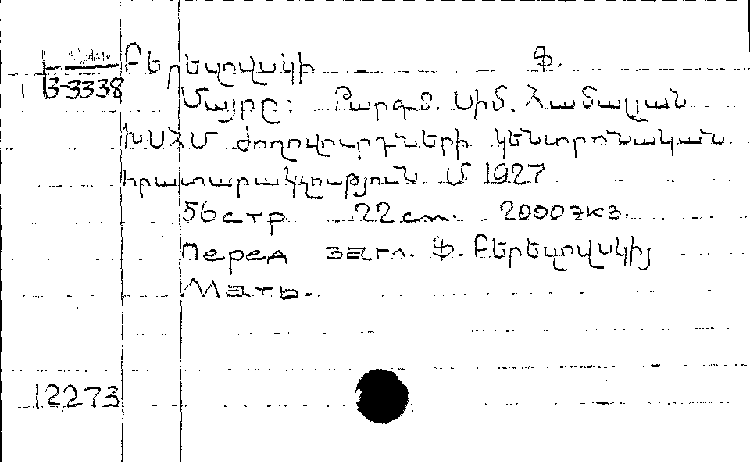 Բերեզովսկի Ֆ.
3-3338
Մայրը: Թարգմ. Սիմ. Համալյան
ԽՍՀՄ ժողովուրդների կենտրոնական
հրատարակչություն Մ 1927
56 стр 22 cm. 2000 экз
Перед загл. Ֆ. Բերեզովսկիյ
Мать.
12273